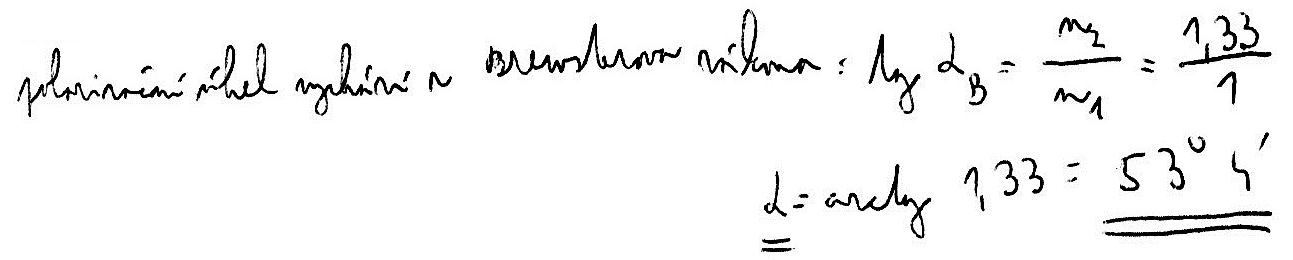 polarizační úhel vychází z Brewsterova zákona: tg α_B = n₂/n₁ = 1,33/1
α = arctg 1,33 = 53° 4'